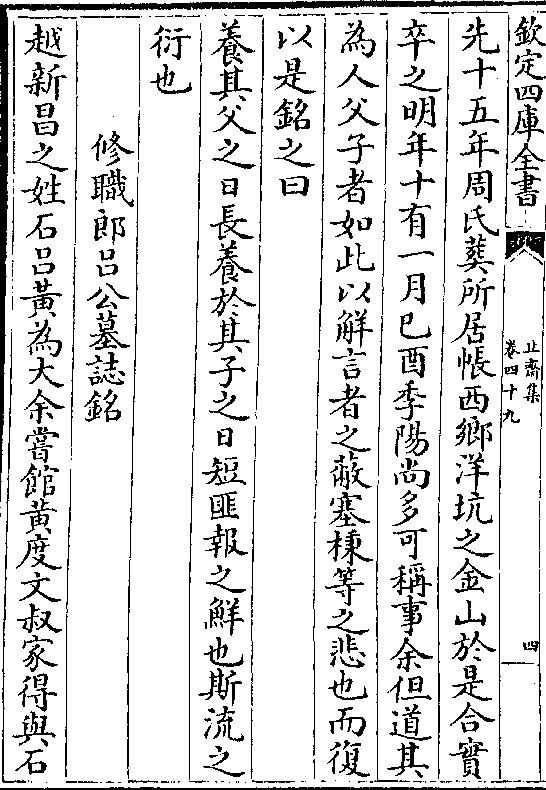 欽定四庫全書
止齋集
卷四十九
四
先十五年周氏葬所居帳西鄉洋坑之金山於是合實
卒之明年十有一月已酉季陽尚多可稱事余但道其
為人父子者如此以解言者之蔽塞棟等之悲也而復
以是銘之曰
養其父之日長養於其子之日短匪報之鮮也斯流之
衍也
修職郎吕公墓誌銘
越新昌之姓石吕黃為大余嘗館黃度文叔家得與石